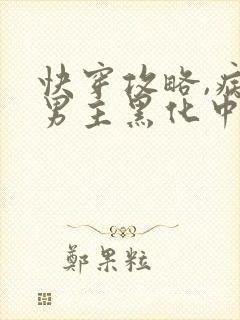 快穿攻略,病
男主黑化中
鄭果粒